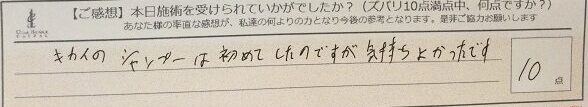 【ご感想】本日施術を受けられていかがでしたか？（ズバリ10点満点中、何点ですか？）
あなた様の率直な感想が、私達の何よりの力となり今後の参考となります。是非ご協力お願いします
キカイの シャンプーは 初めてしたのですが 気持ちよかったです
10点